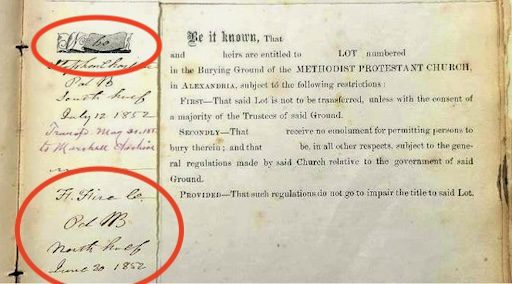 No 60
Stephen
Pd B
South half
July 12 1852
Transf. May 20. 185
to Marshall
F. Fire Co.
Pd B
North half
June 20 1852
Be it known, That
and heirs are entitled to LOT numbered
in the Burying Ground of the METHODIST PROTESTANT CHURCH,
in ALEXANDRIA, subject to the following restrictions:
FIRST—That said Lot is not to be transferred, unless with the consent of
a majority of the Trustees of said Ground.
SECONDLY—That receive no emolument for permitting persons to
bury therein; and that be, in all other respects, subject to the gene-
ral regulations made by said Church relative to the government of said
Ground.
PROVIDED—That such regulations do not go to impair the title to said Lot.